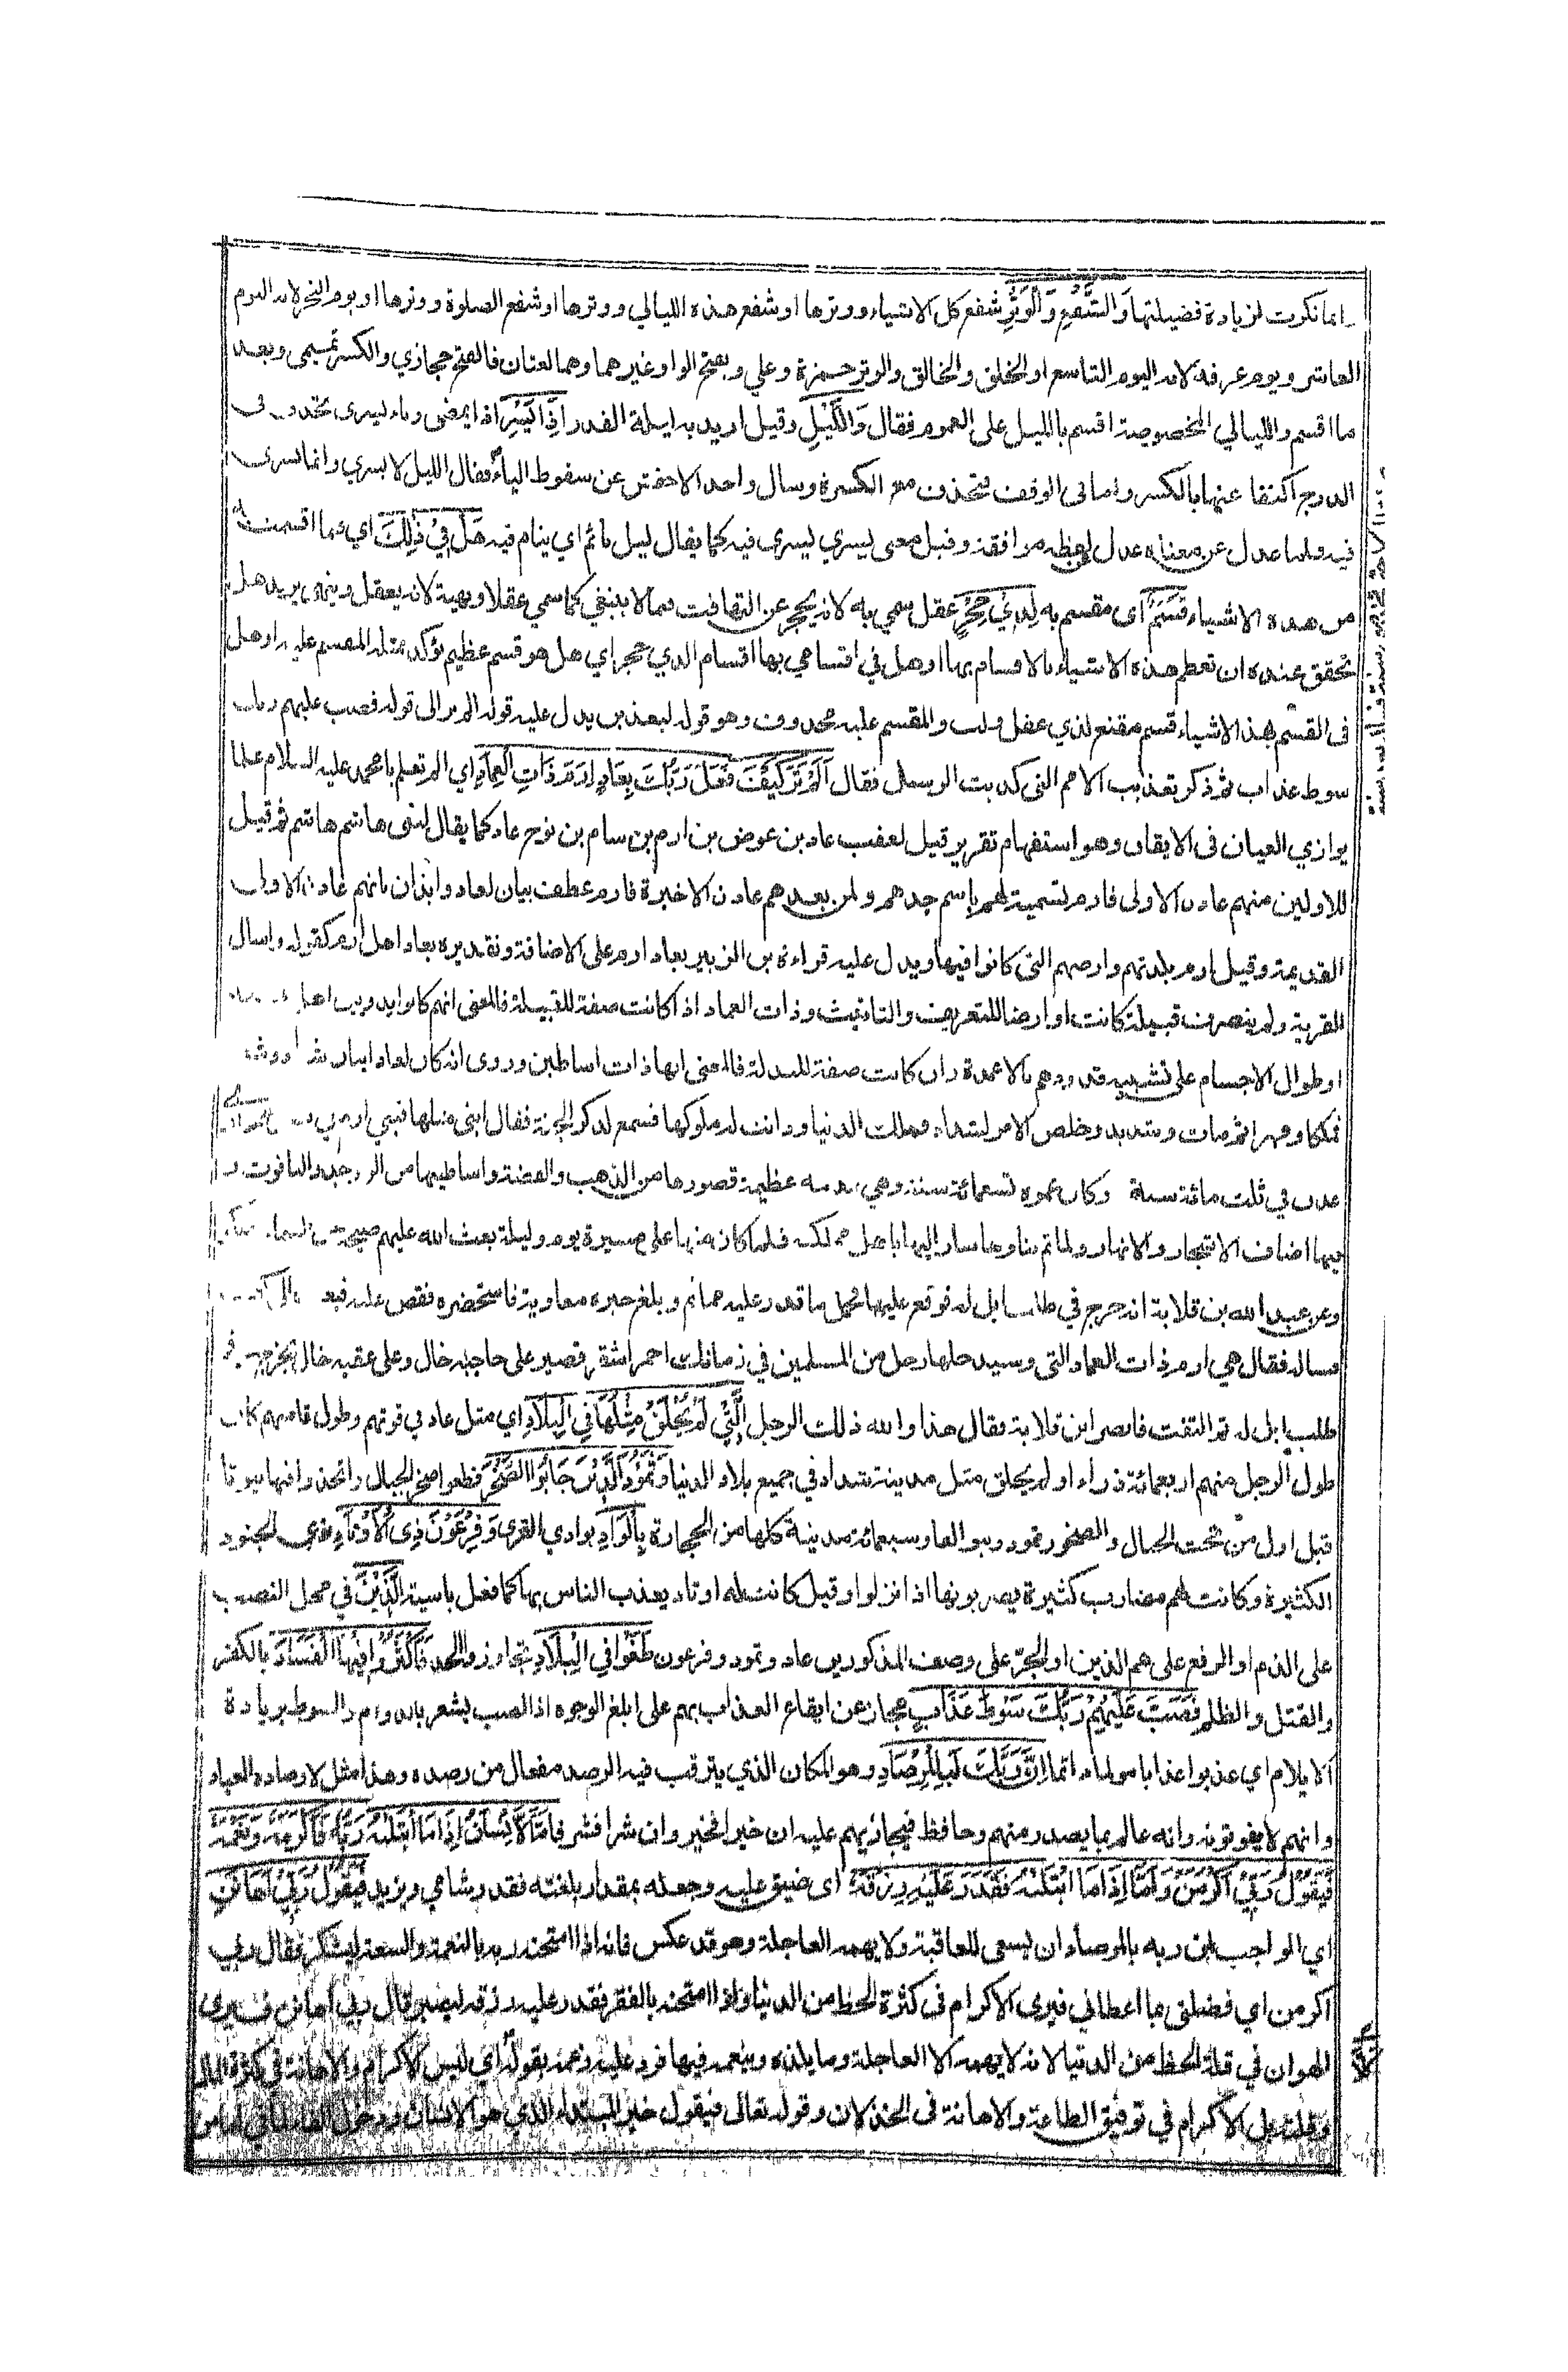 انما نكرت لزيادة فضيلتها وَالشَّفْعِ وَالْوَتْرِ شفع كل الاشياء ووترها او شفع هذه الليالي ووترها او شفع الصلوة ووترها او يوم النحر لانه اليوم
العاشر ويوم عرفة لانه اليوم التاسع او الخلق والخالق والوتر حمزة وعلي وبفتح الواو غيرهما وهما لغتان فالفتح حجازي والكسر تميمي وبعد
ما اقسم بالليالي المخصوصة اقسم بالليل على العموم فقال وَاللَّيْلِ وقيل اريد به ليلة القدر اِذَا يَسْرِ اذا يمضى وياء يسرى تحذف فى
الدرج اكتفا عنها بالكسر واما فى الوقف فتحذف مع الكسرة وسال واحد الاخفش عن سقوط الياء فقال الليل لا يسري وانما يسرى
فيه فلما عدل عن معناه عدل لفظه موافقة وقيل معنى يسري يسرى فيه كما يقال ليل نائم اي ينام فيه هَلْ فِيْ ذٰلِكَ اي فيما اقسمت به
من هذه الاشياء قَسَمٌ اى مقسم به لِّذِيْ حِجْرٍ عقل سمي به لانه يحجر عن التهافت فيما لا ينبغي كما سمي عقلا ونهية لانه يعقل وينهى يريد هل
تحقق عنده ان تعظم هذه الاشياء بالاقسام بها او هل في اقسامي بها اقسام الذي حجر اي هل هو قسم عظيم يؤكد بمثله المقسم عليه او هل
فى القسم بهذه الاشياء قسم مقنع لذي عقل ولب والمقسم عليه محذوف وهو قوله ليعذبن يدل عليه قوله الم تر الى قوله فصب عليهم ربك
سوط عذاب ثم ذكر تعذيب الامم التى كذبت الرسل فقال اَلَمْ تَرَ كَيْفَ فَعَلَ رَبُّكَ بِعَادٍ اِرَمَ ذَاتِ الْعِمَادِ اي الم تعلم يا محمد عليه السلام علما
يوازي العيان فى الايقان وهو استفهام تقرير قيل لعقب عاد بن عوض بن ارم بن سام بن نوح عاد كما يقال لبنى هاشم هاشم ثم قيل
للاولين منهم عاد ن الاولى فارم لتسمية لهم باسم جدهم ولمن بعدهم عاد ن الاخيرة فارم عطف بيان لعاد وايذان بانهم عاد ن الاولى
القديمة وقيل ارم بلدتهم وارضهم التى كانوا فيها ويدل عليه قراءة بن الزبير بعاد ارم على الاضافة وتقديره بعاد اهل ارم كقوله واسال
القرية ولم ينصرف قبيلة كانت او ارضا للتعريف والتانيث وذات العماد اذا كانت صفة للقبيلة فالمعنى انهم كانوا بدويين اهل
او طوال الاجسام على تشبيه قدودهم بالاعمدة وان كانت صفة للبلدة فالمعنى انها ذات اساطين وروى انه كان لعاد ابنان
فملكا وقهرا ثم مات وشديد وخلص الامر لشداد فملك الدنيا ودانت له ملوكها فسمع لذكر الجنة فقال ابنى مثلها فبنى ارم في
عدن في ثلث مائة سنة وكان عمره تسعمائة سنة وهي مدينة عظيمة قصورها من الذهب والفضة واساطينها من الزبرجد والياقوت و
فيها اصناف الاشجار والانهار ولما تم بناوها سار اليها باهل مملكته فلما كان منها على مسيرة يوم وليلة بعث الله عليهم صيحة من السماء
وعن عبد الله بن قلابة انه خرج في طلب ابل له فوقع عليها فحمل ما قدر عليه مما ثم وبلغ خبره معاوية فاستحضره فقص عليه
فساله فقال هي ارم ذات العماد التى وسيدخلها رجل من المسلمين في زمانك احمر اشقر قصير على حاجبه خال وعلى عقبه خال يخرج فى
طلب ابل له ثم التفت فابصر ابن قلابة فقال هذا والله ذلك الرجل الَّتِيْ لَمْ يُخْلَقْ مِثْلُهَا فِي الْبِلَادِ اي مثل عاد في قوتهم وطول قامتهم كان
طول الرجل منهم اربعمائة ذراع او لم يخلق مثل مدينة شداد في جميع بلاد الدنيا وَثَمُوْدَ الَّذِيْنَ جَابُوا الصَّخْرَ قطعوا صخر الجبال واتخذوا فيها بيوتا
قيل اول من نحت الجبال والصخور ثمود وبنوا الفا وسبعمائة مدينة كلها من الحجارة بِالْوَادِ بوادي القرى وَفِرْعَوْنَ ذِى الْاَوْتَادِ ذي الجنود
الكثيرة وكانت لهم مضارب كثيرة يضربونها اذا نزلوا وقيل كانت له اوتاد يعذب الناس بها كما فعل باسية الَّذِيْنَ في محل النصب
على الذم او الرفع على هم الذين او الجر على وصف المذكورين عاد وثمود وفرعون طَغَوْا فِي الْبِلَادِ تجاوزوا الحد فَاَكْثَرُوْا فِيْهَا الْفَسَادَ بالكفر
والقتل والظلم فَصَبَّ عَلَيْهِمْ رَبُّكَ سَوْطَ عَذَابٍ مجاز عن ايقاع العذاب بهم على ابلغ الوجوه اذ الصب يشعر بالدوام والسوط بزيادة
الايلام اي عذبوا عذابا مولما دائما اِنَّ رَبَّكَ لَبِالْمِرْصَادِ وهو المكان الذي يترقب فيه الرصد مفعال من رصده وهذا مثل لارصاده العباد
وانهم لا يفوتونه وانه عالم بما يصدر منهم وحافظ فيجازيهم عليه ان خيرا فخير وان شرا فشر فَاَمَّا الْاِنْسَانُ اِذَا مَا ابْتَلٰىهُ رَبُّهٗ فَاَكْرَمَهٗ وَنَعَّمَهٗ
فَيَقُوْلُ رَبِّيْ اَكْرَمَنِ وَاَمَّا اِذَا مَا ابْتَلٰىهُ فَقَدَرَ عَلَيْهِ رِزْقَهٗ اى ضيق عليه وجعله بمقدار بلغته فقدر شامي ويزيد فَيَقُوْلُ رَبِّيْ اَهَانَنِ
اي الواجب لمن ربه بالمرصاد ان يسعى للعاقبة ولا يهمه العاجلة وهو قد عكس فانه اذا امتحنه ربه بالنعمة والسعة ليشكر فقال ربي
اكرمن اي فضلنى بما اعطانى فيرى الاكرام فى كثرة الحظ من الدنيا واذا امتحنه بالفقر فقدر عليه رزقه ليصبر قال ربي اهانن فيرى
الهوان في قلة الحظ من الدنيا لانه لا يهمه الا العاجلة وما يلذه وينعمه فيها فرد عليه زعمه بقوله اي ليس الاكرام والاهانة في كثرة المال
وقلته بل الاكرام في توفيق الطاعة والاهانة فى الخذلان وقوله تعالى فيقول خبر المبتداء الذي هو الانسان ودخول الفاء لما في اما من
كَلَّا